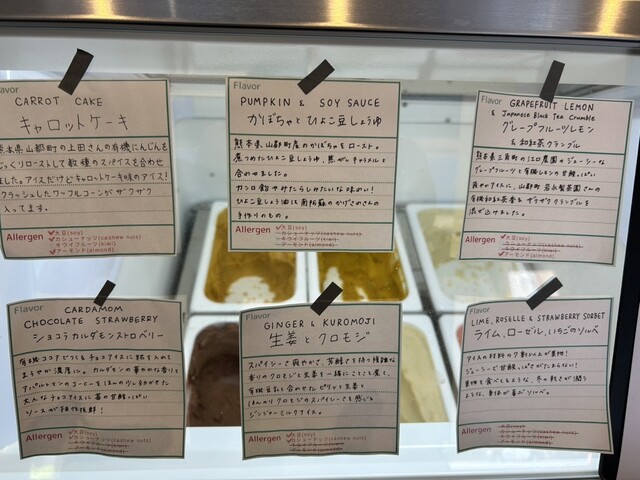 Flavor
CARROT CAKE
キャロットケーキ
熊本県山都町の土田さんの有機にんじんを
じっくりローストして数種のスパイスを合わせ
ました。アイスだけどキャロットケーキ味のアイス!
クラッシュしたワッフルコーンがザクザク
入ってます。
Allergen
大豆(soy)
カシューナッツ(cashew nuts)
キウイフルーツ(kiwi)
アーモンド(almond)
Flavor
PUMPKIN & SOY SAUCE
かぼちゃとひよこ豆しょうゆ
熊本県、山都町産のかぼちゃをロースト。
煮つめたひよこ豆しょうゆ、焦がしキャラメルと
合わせました。
カンロ飴やみたらしみたいな味わい!
ひよこ豆しょうゆは南阿蘇のかげさわさんの
手作りのもの。
Allergen
大豆(soy)
カシューナッツ(cashew nuts)
キウイフルーツ(kiwi)
アーモンド(almond)
Flavor
GRAPEFRUIT LEMON
& Japanese Black Tea Crumble
グレープフルーツレモン
& 和紅茶クランブル
熊本県三角町の
グレープフルーツと有機レモンの甘酸っぱい
爽やかアイスに、山都町
有機和紅茶香るザクザククランブルを
混ぜ込みました。
Allergen
大豆(soy)
カシューナッツ(cashew nuts)
キウイフルーツ(kiwi)
アーモンド(almond)
Flavor
CARDAMOM
CHOCOLATE STRAWBERRY
ショコラカルダモンストロベリー
有機ココアでつくるチョコアイスに
まろやかな濃厚に。カルダモンの華やかな香りと
のコーヒーをほんのり
大人なチョコアイスに苺の甘酸っぱい
ソースが相性抜群!
Allergen
大豆(soy)
カシューナッツ(cashew nuts)
Flavor
GINGER & KUROMOJI
生姜とクロモジ
スパイシーで爽やかさ、芳醇さを持つ複雑な
香りのクロモジと生姜を一緒にことこと煮て、
有機豆乳と合わせたピリッと生姜と
ほんのりクロモジのスパイシーさも感じる
ジンジャーミルクアイス。
Allergen
大豆(soy)
カシューナッツ(cashew nuts)
Flavor
LIME, ROSELLE & STRAWBERRY SORBET
ライム、ローゼル、いちごのソルベ
アイスの材料の9割以上が果物!
ジューシーで甘酸っぱさがたまらない!
果物を食べてるような、冬の乾きが潤う
ような、身体が喜ぶソルベ。
Allergen
大豆(soy)
カシューナッツ(cashew nuts)